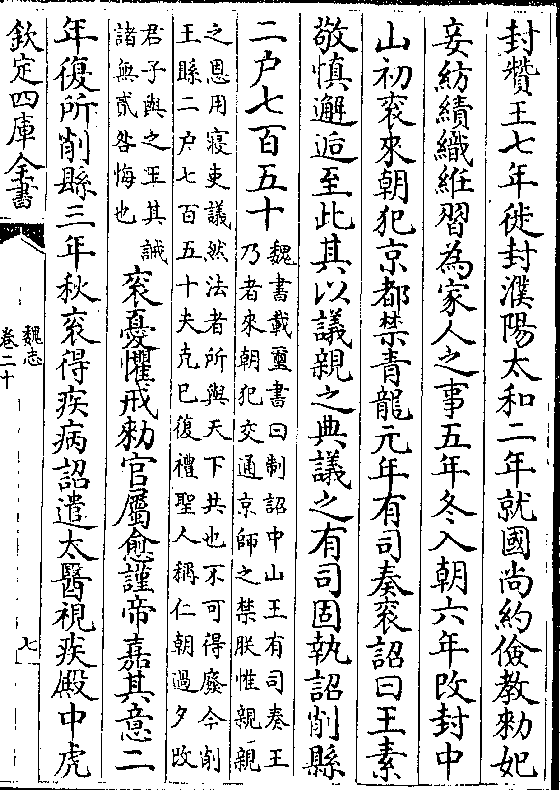 封贊王七年徙封濮陽太和二年就國尚約儉教勑妃
妾紡績織維習為家人之事五年冬入朝六年改封中
山初衮來朝犯京都禁青龍元年有司奏衮詔曰王素
敬慎邂逅至此其以議親之典議之有司固執詔削縣
二户七百五十
魏書載璽書曰制詔中山王有司奏王
乃者來朝犯交通京師之禁朕惟親親
之恩用寢吏議然法者所與天下共也不可得廢今削
王縣二户七百五十夫克已復禮聖人稱仁朝過夕改
君子與之王其誡
諸無貳咎悔也
衮憂懼戒勑官屬愈謹帝嘉其意二
年復所削縣三年秋衮得疾病詔遣太醫視疾殿中虎
欽定四庫全書
魏志
卷二十
七